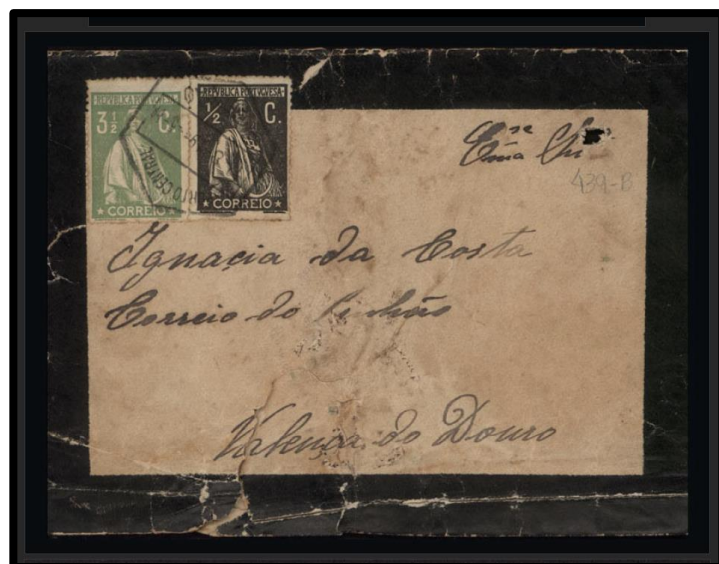 REPVBLICA PORTVGVESA
3 1/2 C.
CORREIO
REPVBLICA PORTVGVESA
1/2 C.
CORREIO
PORTO CENTRAL
Exma
439-B
Ignacia da Costa
Correio do Pinhão
Valença do Douro